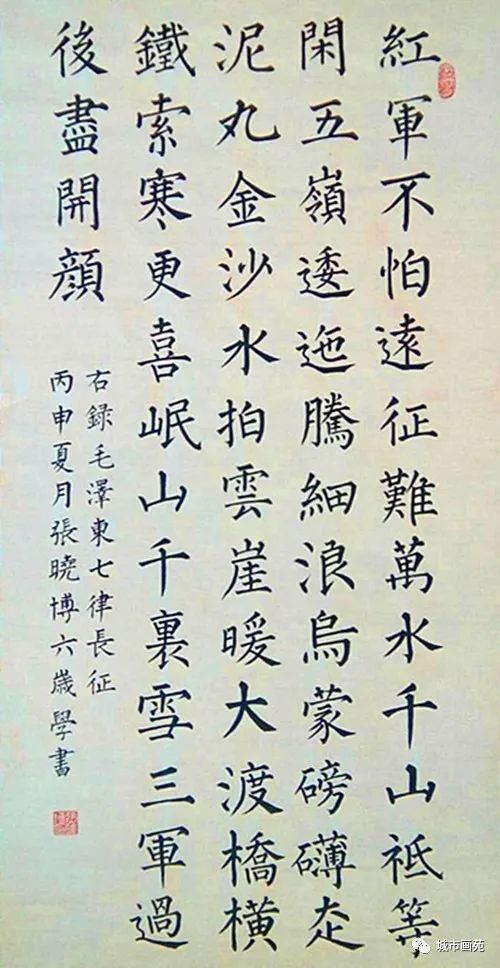 紅軍不怕遠征難萬水千山祗等
閑五嶺逶迤騰細浪烏蒙磅礴走
泥丸金沙水拍雲崖暖大渡橋橫
鐵索寒更喜岷山千裏雪三軍過
後盡開顔
右錄毛澤東七律長征
丙申夏月張曉博六歲學書
城市画苑